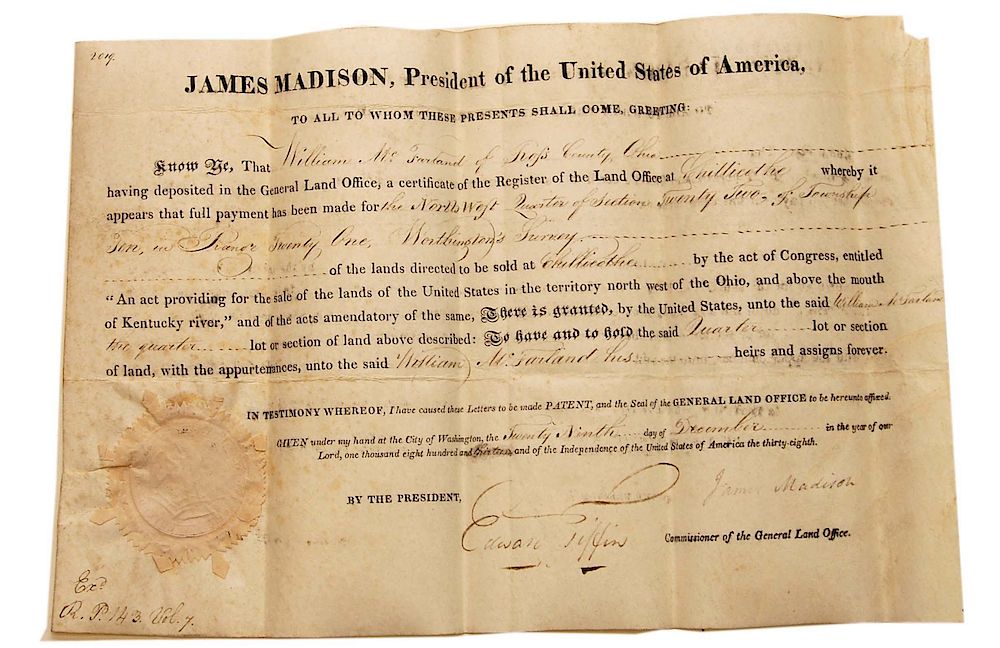 2019.
JAMES MADISON, President of the United States of America,
TO ALL TO WHOM THESE PRESENTS SHALL COME, GREETING:
Know Ye, That William Mc Farland of Ross County, Ohio
having deposited in the General Land Office, a certificate of the Register of the Land Office at Chillicothe whereby it
appears that full payment has been made for the North West Quarter of Section Twenty Two, of Township
Ten, in Range Twenty One, Worthington's Survey
of the lands directed to be sold at Chillicothe by the act of Congress, entitled
"An act providing for the sale of the lands of the United States in the territory north west of the Ohio, and above the mouth
of Kentucky river," and of the acts amendatory of the same, There is granted, by the United States, unto the said William McFarland
the quarter lot or section of land above described: To have and to hold the said Quarter lot or section
of land, with the appurtenances, unto the said William Mc Farland his heirs and assigns forever.
IN TESTIMONY WHEREOF, I have caused these Letters to be made PATENT, and the Seal of the GENERAL LAND OFFICE to be hereunto affixed.
GIVEN under my hand at the City of Washington, the Twenty Ninth day of December in the year of our
Lord, one thousand eight hundred and thirteen and of the Independence of the United States of America the thirty-eighth.
BY THE PRESIDENT, James Madison
Edward Tiffin Commissioner of the General Land Office.
Exd
R. P. 143. Vol. 7.